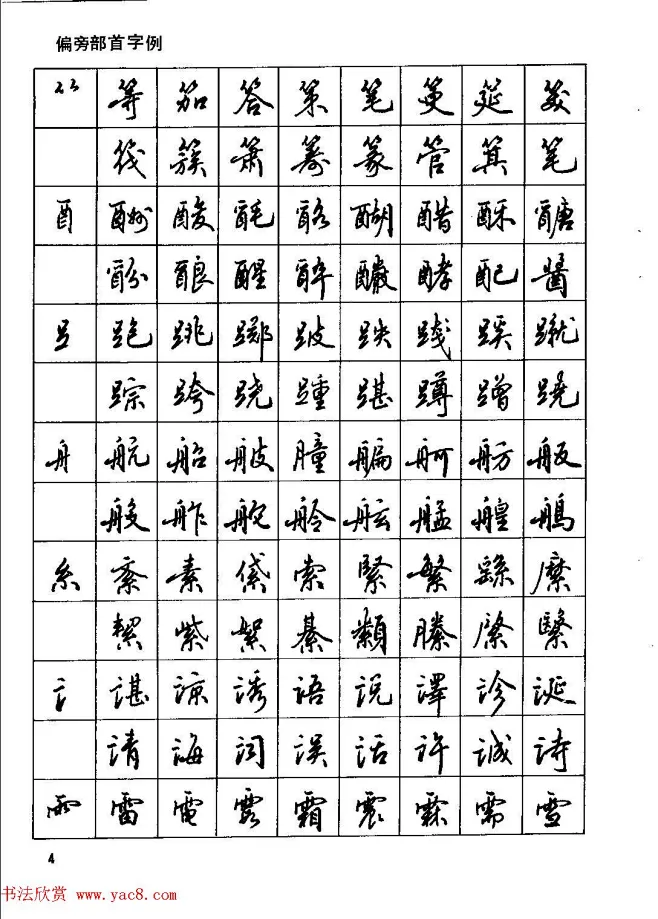 偏旁部首字例
⺮ 等 笳 答 策 笔 筵
筏 簇 萧 筹 篆 管 箕 笔
酉 酬 酸 酕 酪 醐 醋 酥 醣
酚 酿 醒 醉 酽 酵 配 醫
𧾷 跑 跳 踯 跛 跌 践 蹊 蹴
踪 跨 跷 踵 踸 蹲 蹭 蹺
舟 航 船 艟 艑 舸 舫 舨
艘 舴 舵 舲 舷 艋 艎
糸 紊 素 索 緊 繁 繇 縻
絜 紫 絮 綦 纇 縢 綮 繄
讠 谌 谅 诱 语 说 譯 诊 诞
请 诲 词 误 话 许 诚 诗
雨 雷 電 露 霜 震 霖 需 雪
4
书法欣赏 www.yac8.com